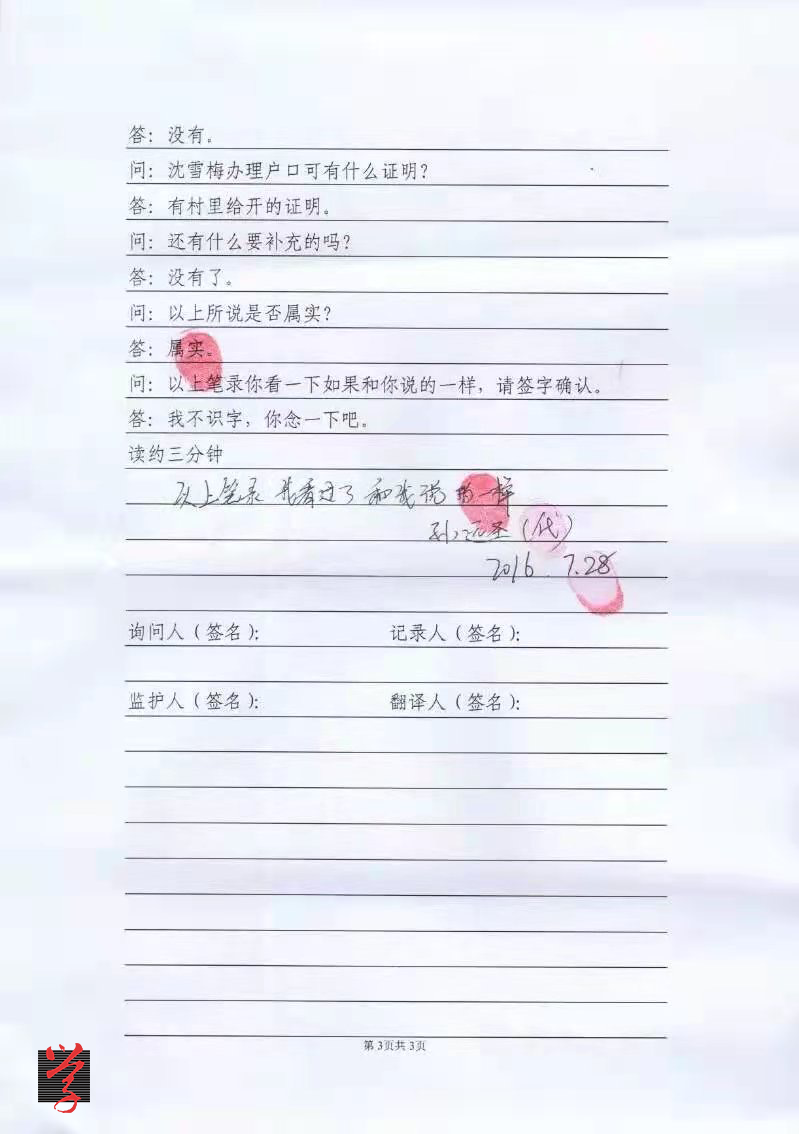 答：没有。
问：沈雪梅办理户口可有什么证明？
答：有村里给开的证明。
问：还有什么要补充的吗？
答：没有了。
问：以上所说是否属实？
答：属实。
问：以上笔录你看一下如果和你说的一样，请签字确认。
答：我不识字，你念一下吧。
读约三分钟
以上笔录我看过了和我说的一样
孙 圣（代）
2016.7.28
询问人（签名）： 记录人（签名）：
监护人（签名）： 翻译人（签名）：
第3页共3页
学